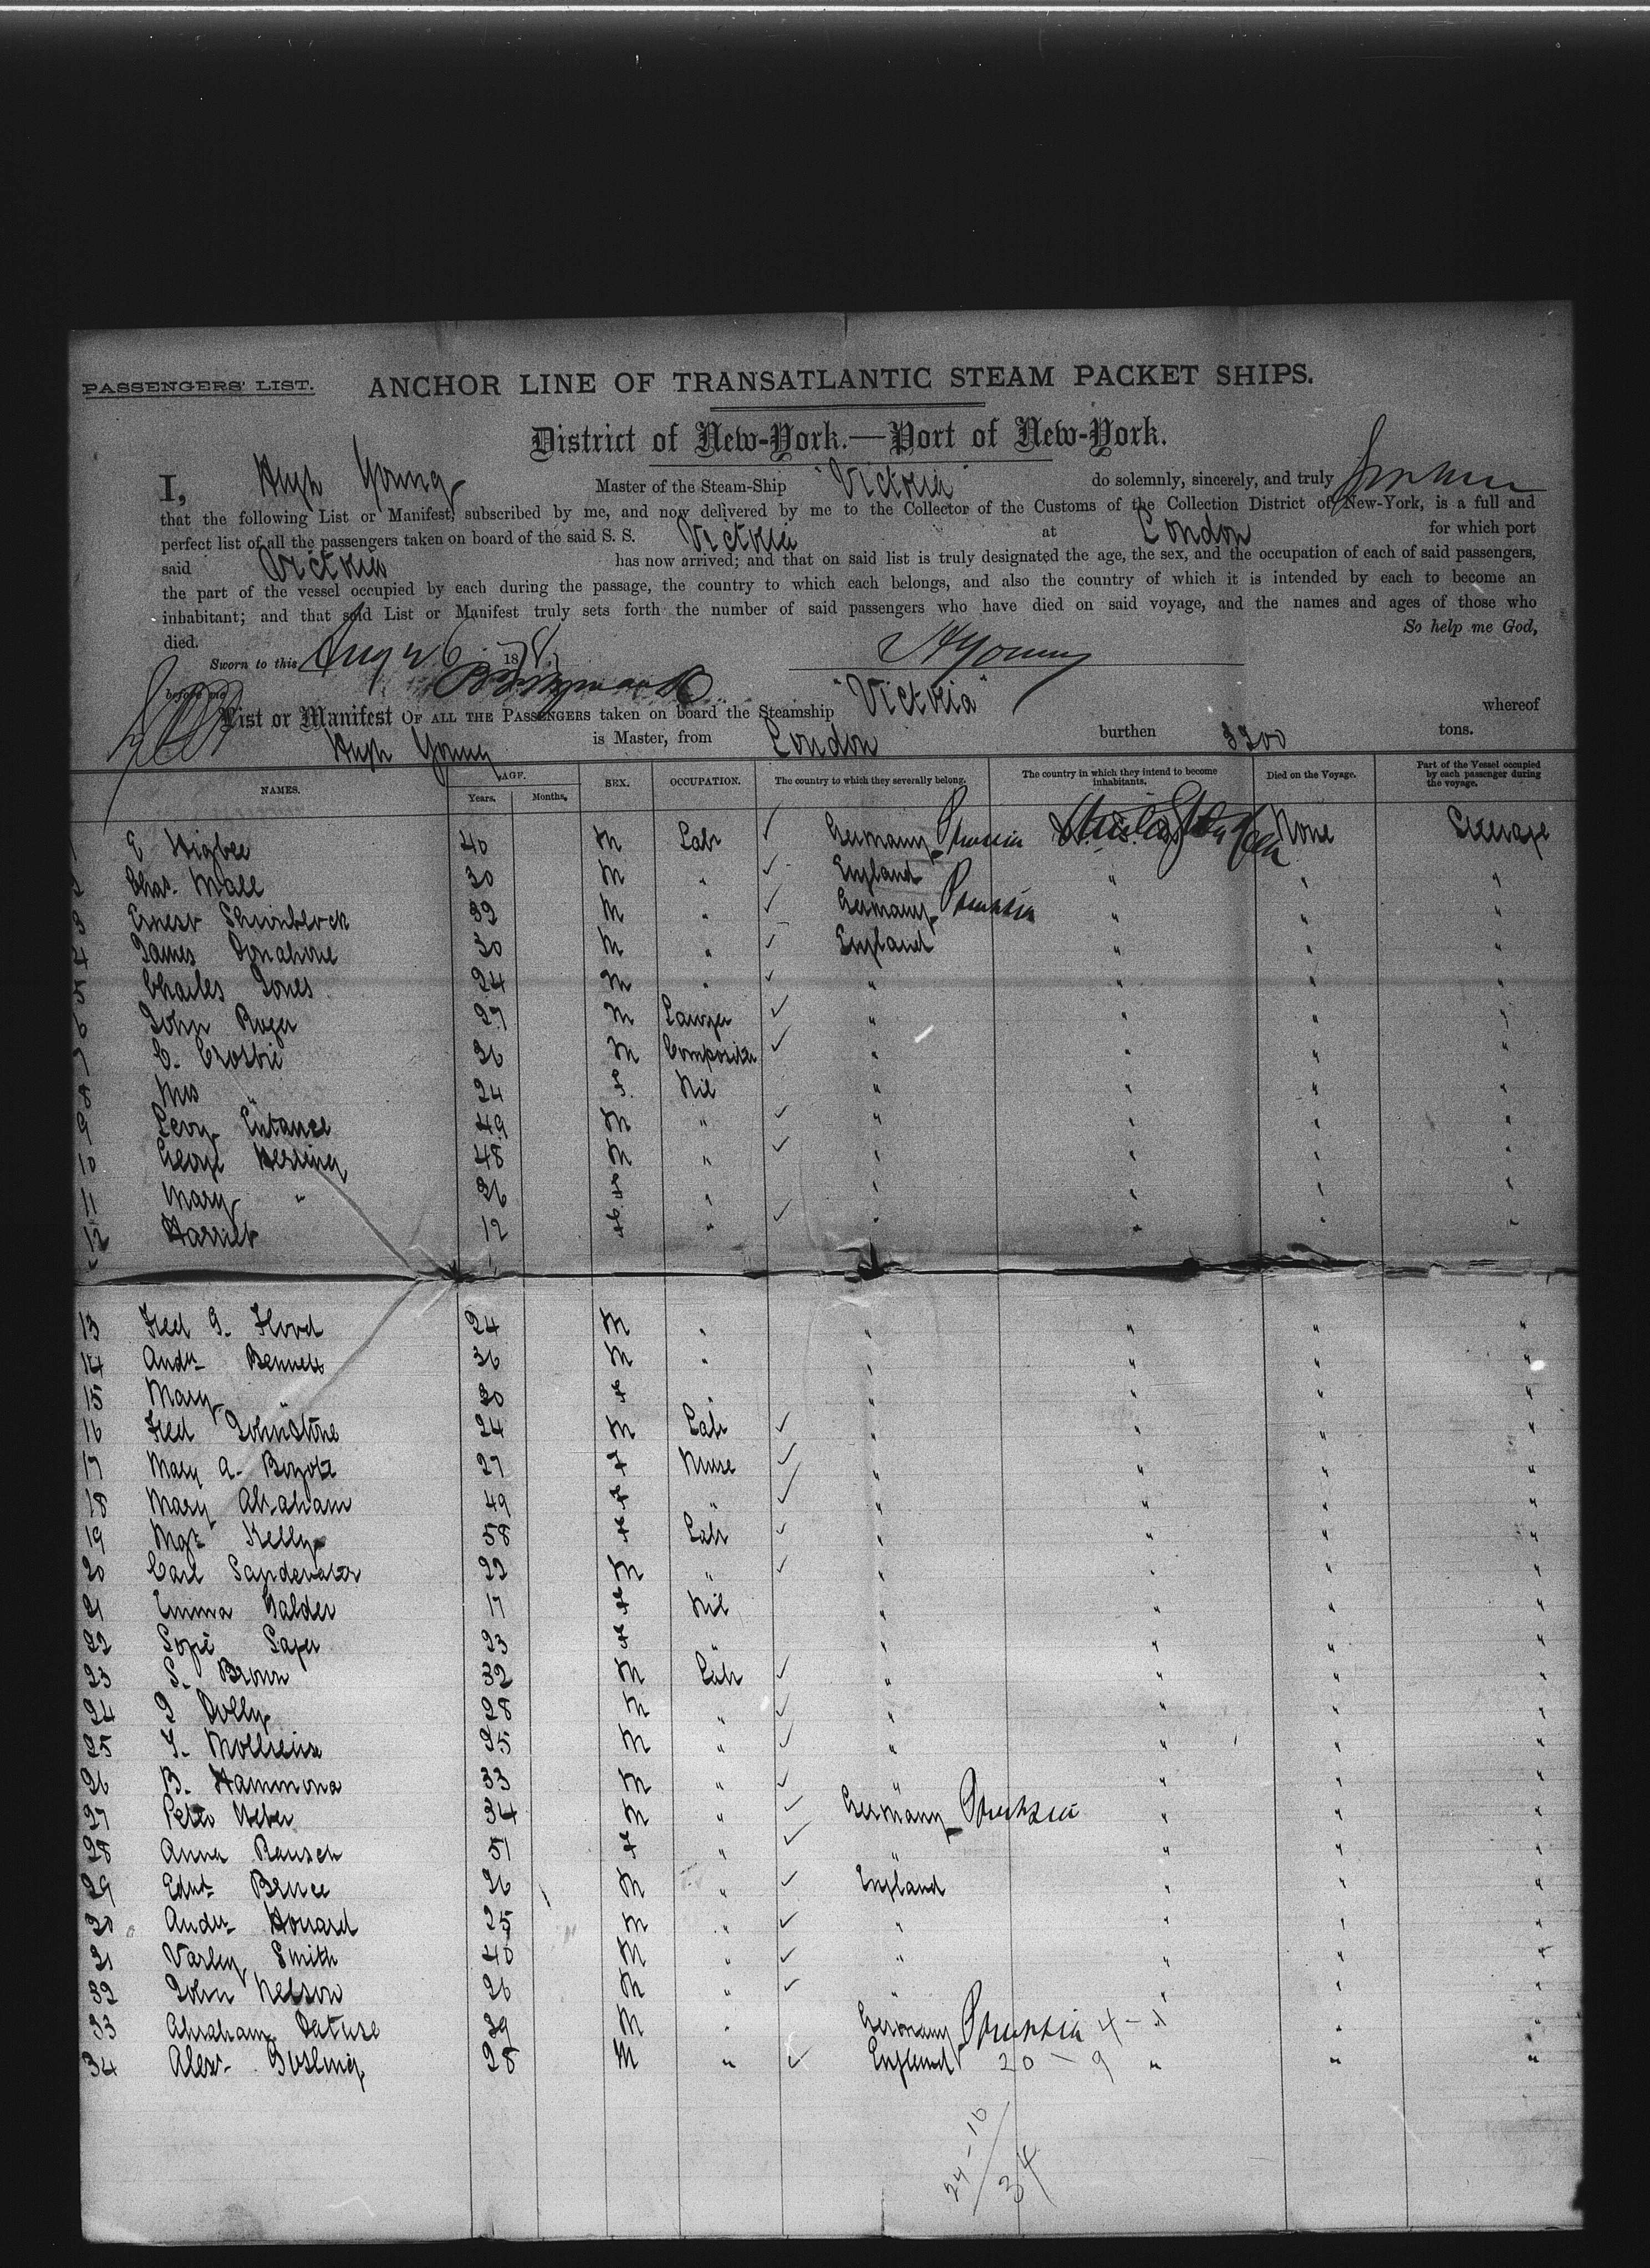 PASSENGERS' LIST. ANCHOR LINE OF TRANSATLANTIC STEAM PACKET SHIPS.
District of New-York.—Port of New-York.
I, Hugh Young Master of the Steam-Ship "Victoria" do solemnly, sincerely, and truly
that the following List or Manifest, subscribed by me, and now delivered by me to the Collector of the Customs of the Collection District of New-York, is a full and
perfect list of all the passengers taken on board of the said S. S. Victoria at London for which port
said Victoria has now arrived; and that on said list is truly designated the age, the sex, and the occupation of each of said passengers,
the part of the vessel occupied by each during the passage, the country to which each belongs, and also the country of which it is intended by each to become an
inhabitant; and that said List or Manifest truly sets forth the number of said passengers who have died on said voyage, and the names and ages of those who
died. So help me God,
Sworn to this Aug 26 1878 HYoung
before me
List or Manifest OF ALL THE PASSENGERS taken on board the Steamship "Victoria" whereof
Hugh Young is Master, from London burthen 3200 tons.
NAMES. AGE. Years. Months. SEX. OCCUPATION. The country to which they severally belong. The country in which they intend to become inhabitants. Died on the Voyage. Part of the Vessel occupied by each passenger during the voyage.
1 E Higbee 40 M Labr Germany Prussia None Steerage
2 Chas. Wall 30 M " England " " "
3 Ernest 32 M " Germany Prussia " " "
4 James Donahue 30 M " England " " "
5 Charles Jones 24 M " " " " "
6 John Roger 27 M Lawyer " " " "
7 C. Crosbie 36 M Compositor " " " "
8 Mrs " 24 F. Nil " " " "
9 Levy 49 M " " " " "
10 George Herring 48 M " " " " "
11 Mary " 36 F " " " " "
12 Harriet 12 F " " " " "
13 Fred G. Flood 24 M " " " " "
14 Andw Bennett 36 M " " " " "
15 Mary " 20 F " " " " "
16 Fred Johnstone 24 M Labr " " " "
17 Mary A. 27 F Nurse " " " "
18 Mary Abraham 49 F " " " " "
19 Mgt Kelly 58 F Labr " " " "
20 Carl 22 M " " " " "
21 Emma Halder 17 F Nil " " " "
22 Sopie 23 F " " " " "
23 S. Brown 32 M Labr " " " "
24 J Dolly 28 M " " " " "
25 25 M " " " " "
26 B. Hammona 33 M " " " " "
27 Peter Weber 34 M " Germany Prussia " " "
28 Anna Rausch 51 F " " " " "
29 Edwd Bruce 26 M " England " " "
30 Andw Howard 25 M " " " " "
31 Varley Smith 40 M " " " " "
32 John Nelson 26 M " " " " "
33 Abraham 39 M " Germany Prussia 4 - 1 " " "
34 Alexr Gosling 28 M " England 20 - 9 " " "
24 - 10
34